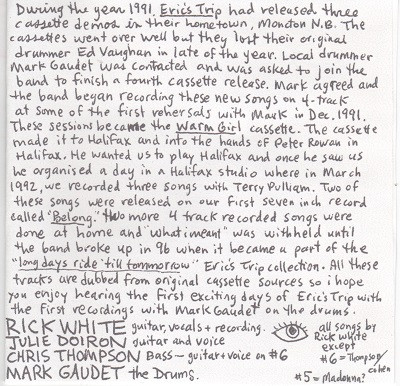 During the year 1991, Eric's Trip had released three
cassette demos in their hometown, Moncton N.B. The
cassettes went over well but they lost their original
drummer Ed Vaughan in late of the year. Local drummer
Mark Gaudet was contacted and was asked to join the
band to finish a fourth cassette release. Mark agreed and
the band began recording these new songs on 4-track
at some of the first rehersals with Mark in Dec. 1991.
These sessions became the Warm Girl cassette. The cassette
made it to Halifax and into the hands of Peter Rowan in
Halifax. He wanted us to play Halifax and once he saw us
he organised a day in a Halifax studio where in March
1992, we recorded three songs with Terry Pulliam. Two of
these songs were released on our first seven inch record
called "Belong." two more 4 track recorded songs were
done at home and "what i meant" was withheld until
the band broke up in 96 when it became a part of the
"long days ride 'till tommorrow" Eric's Trip collection. All these
tracks are dubbed from original cassette sources so i hope
you enjoy hearing the first exciting days of Eric's Trip with
the first recordings with Mark Gaudet on the drums.
RICK WHITE guitar, vocals + recording.
JULIE DOIRON guitar and voice
CHRIS THOMPSON Bass - guitar + voice on #6
MARK GAUDET the Drums.
all songs by
Rick White
except
#6 = Thompson/
cohen
#5 = Madonna?